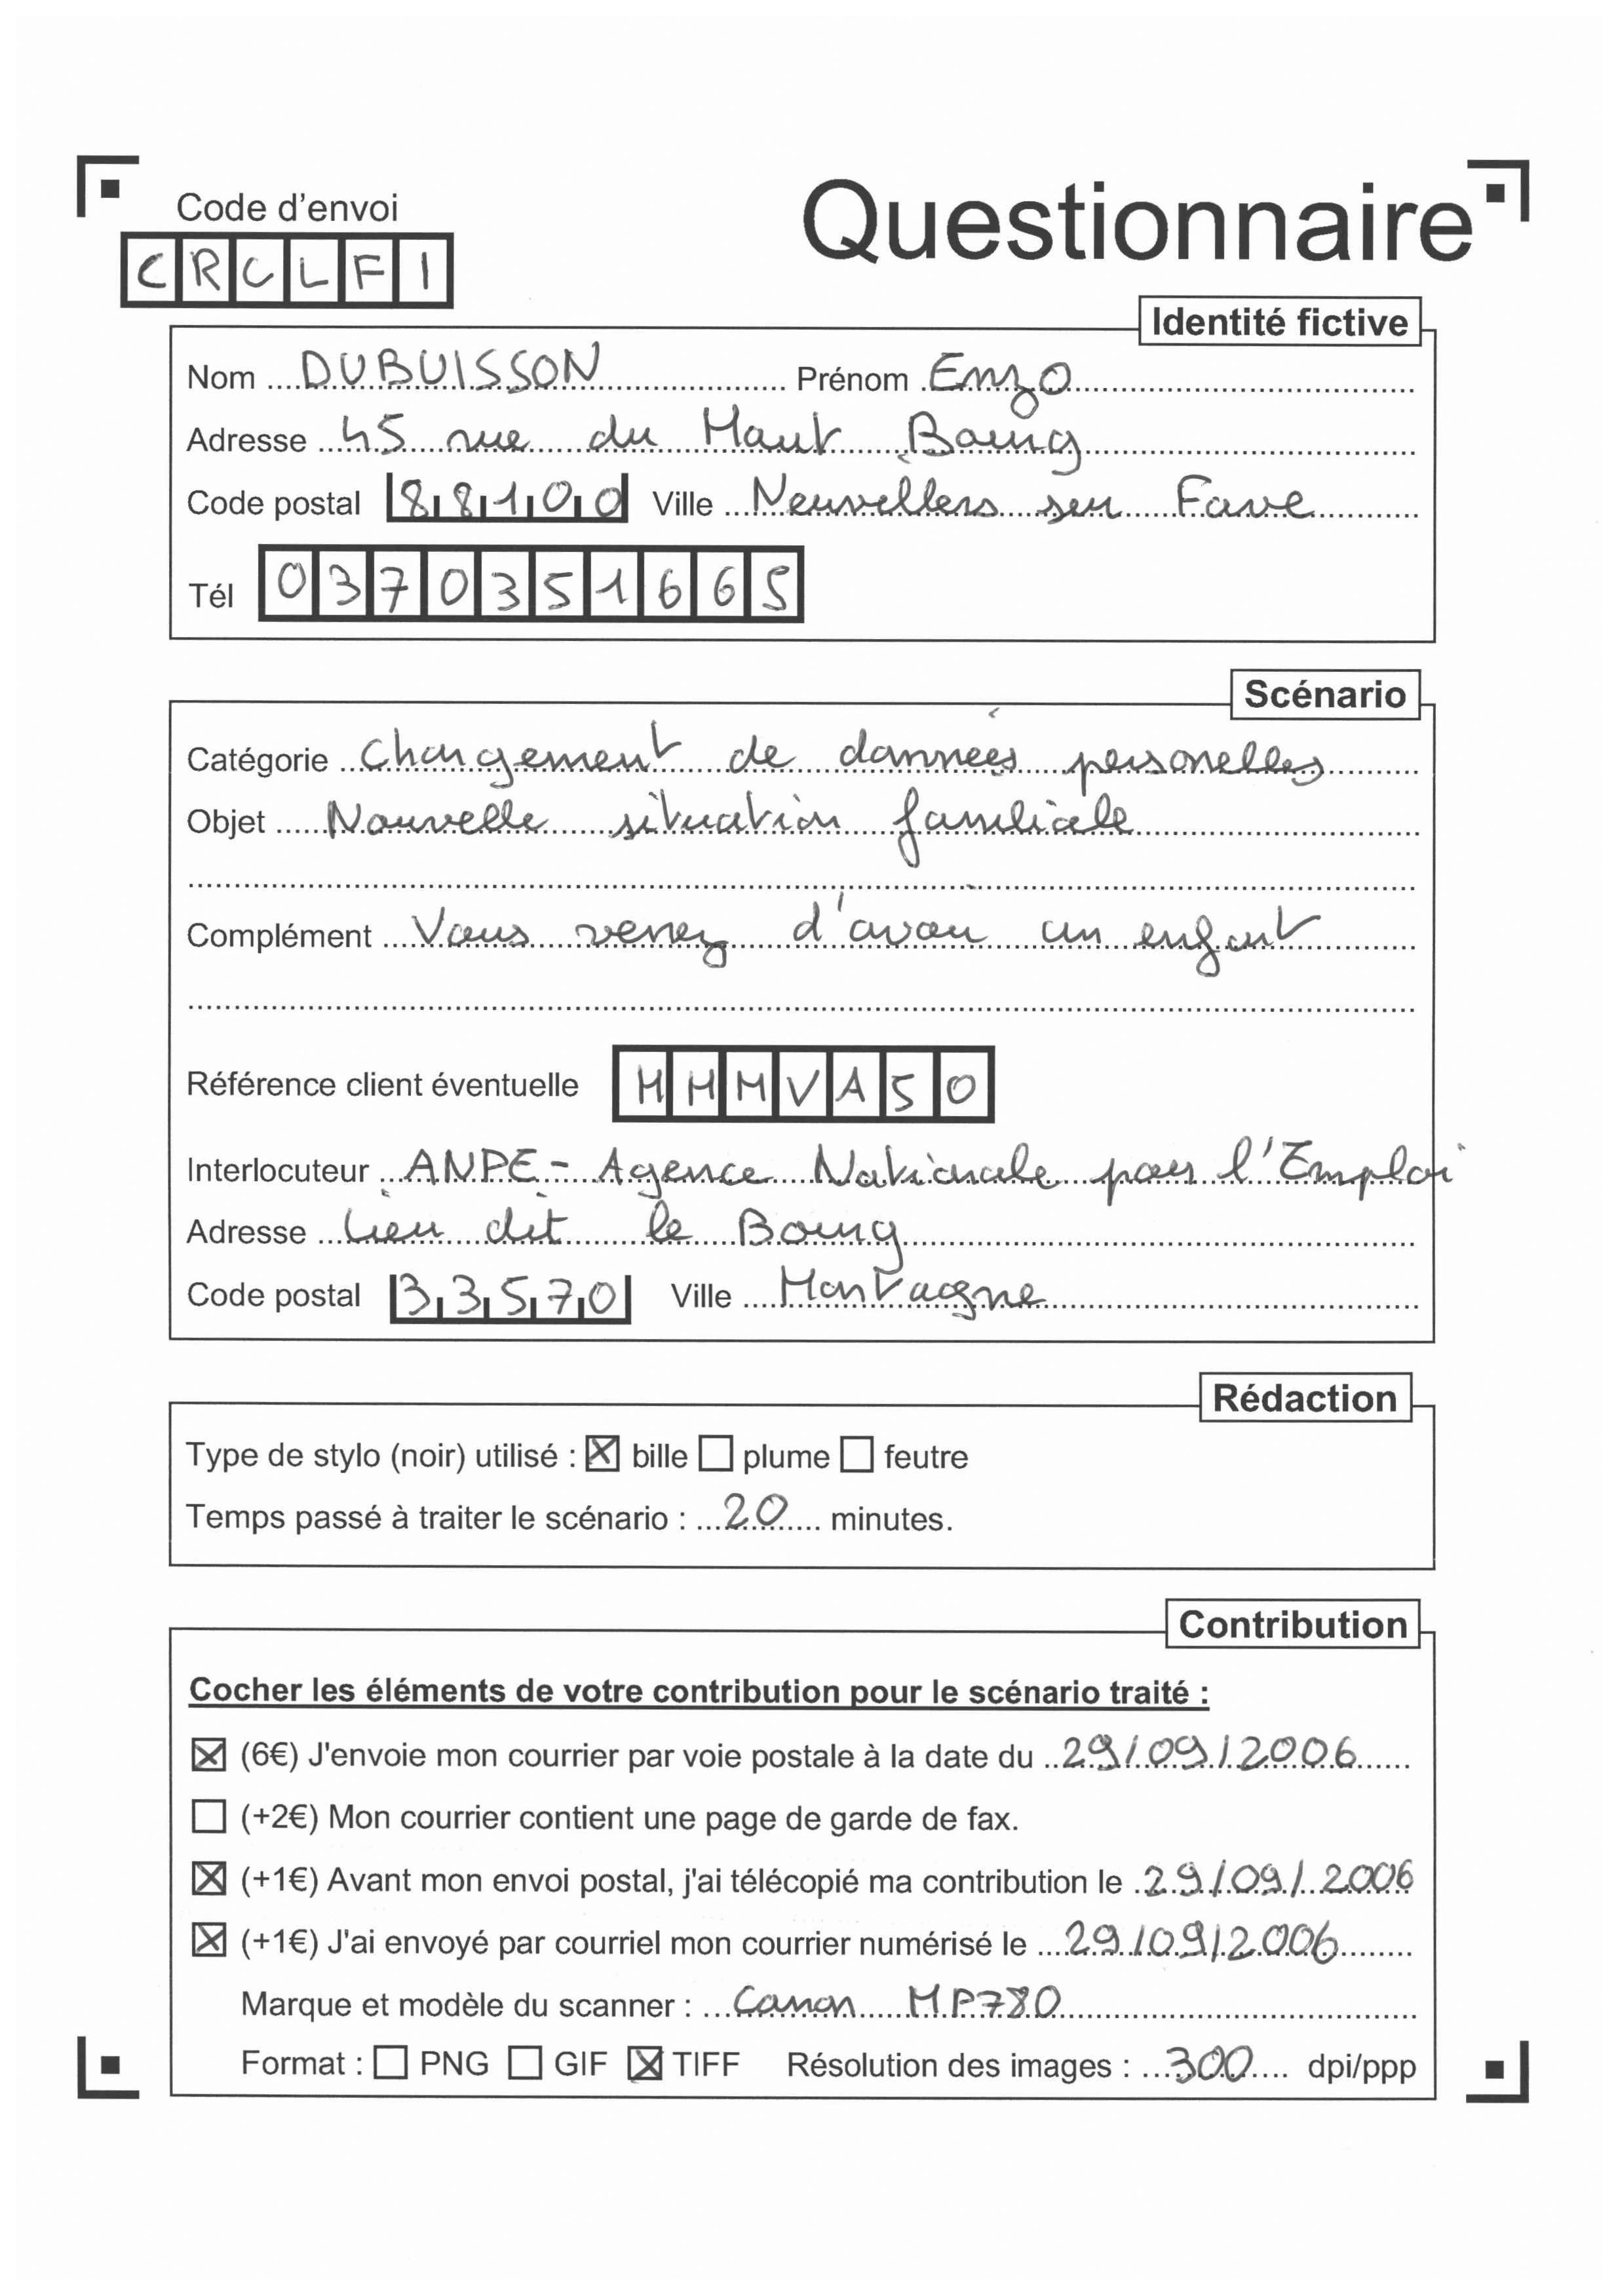 Code d'envoi
Questionnaire
CRCLFI
Identité fictive
Nom DUBUISSON Prénom Enzo
Adresse 45 rue du Haut Bourg
Code postal 88100 Ville Neuvillers sur Fave
Tél 0370351665
Scénario
Catégorie Changement de données personelles
Objet Nouvelle situation familiale
Complément Vous venez d'avoir un enfant
Référence client éventuelle HHMVA50
Interlocuteur ANPE - Agence Nationale pour l'Emploi
Adresse Lieu dit le Bourg
Code postal 33570 Ville Montagne
Rédaction
Type de stylo (noir) utilisé : ☒ bille ☐ plume ☐ feutre
Temps passé à traiter le scénario : 20 minutes.
Contribution
Cocher les éléments de votre contribution pour le scénario traité :
☒ (6€) J'envoie mon courrier par voie postale à la date du 29/09/2006
☐ (+2€) Mon courrier contient une page de garde de fax.
☒ (+1€) Avant mon envoi postal, j'ai télécopié ma contribution le 29/09/2006
☒ (+1€) J'ai envoyé par courriel mon courrier numérisé le 29/09/2006
Marque et modèle du scanner : Canon MP780
Format : ☐ PNG ☐ GIF ☒ TIFF Résolution des images : 300 dpi/ppp